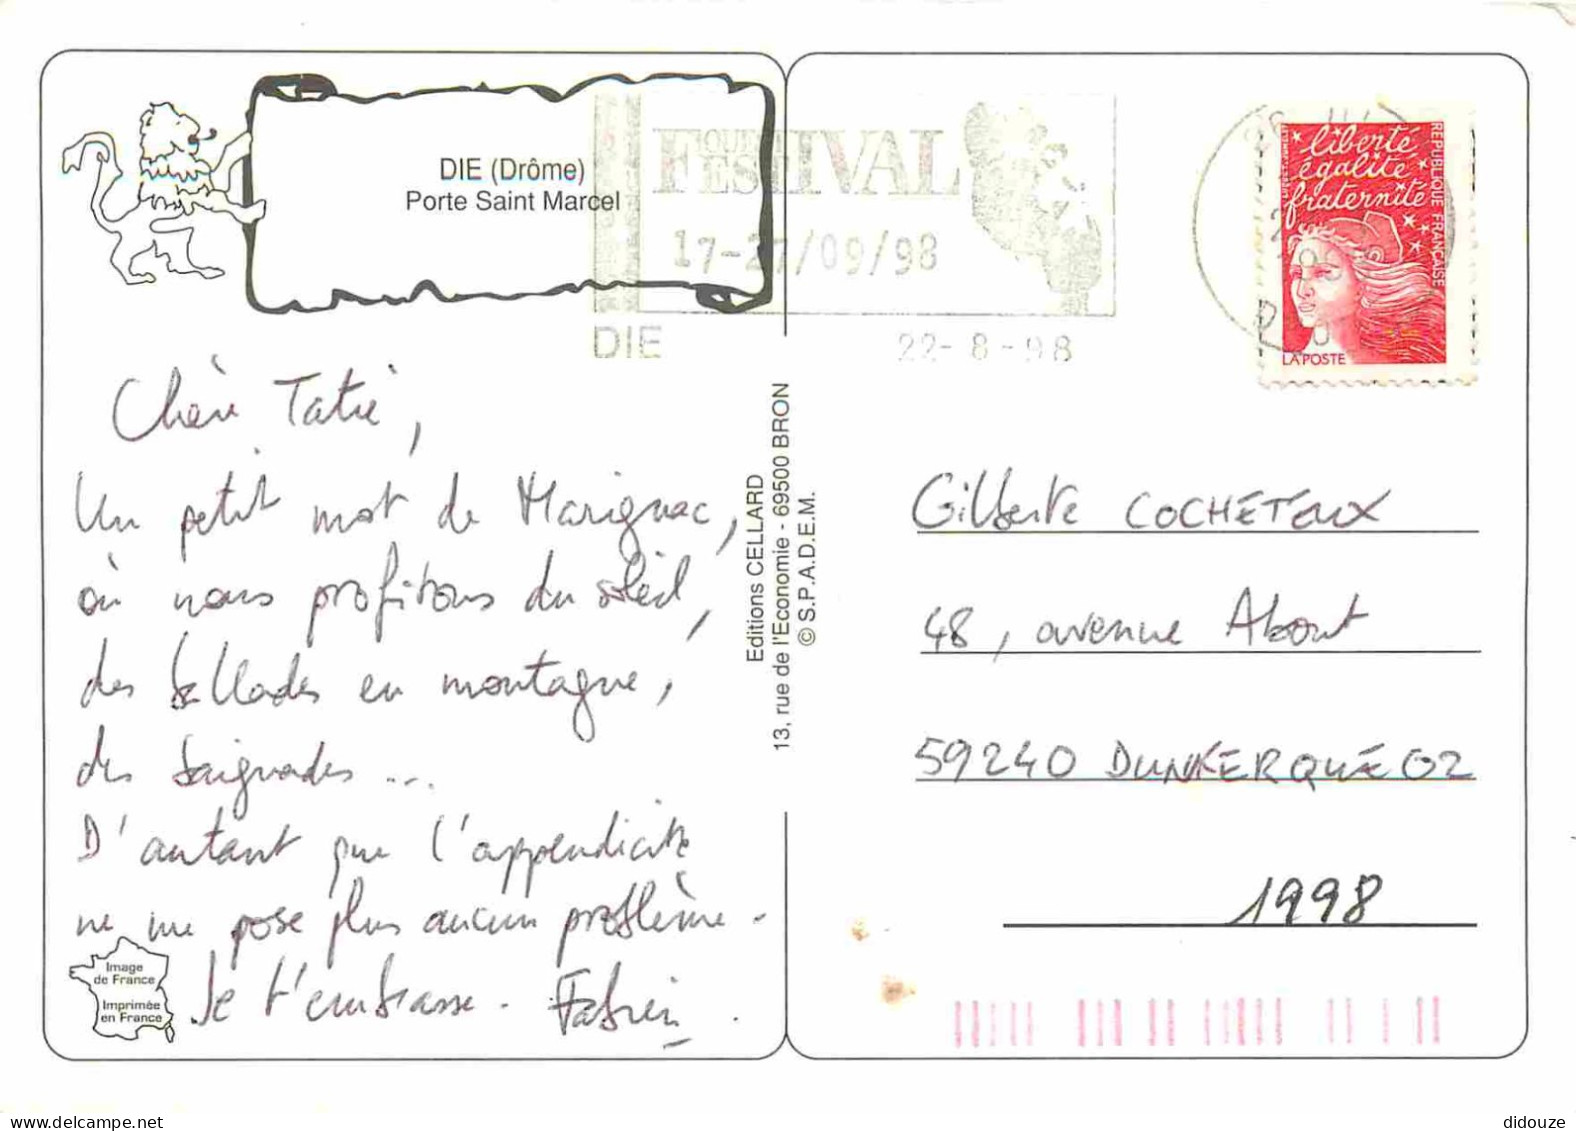 DIE (Drôme)
Porte Saint Marcel
FESTIVAL
17-27/09/98
DIE
22-8-98
liberté
égalité
fraternité
REPUBLIQUE FRANÇAISE
LA POSTE
Chère Tatie,
Un petit mot de Marignac,
où nous profitons du soleil,
des ballades en montagne,
des baignades ...
D'autant que l'appendicite
ne me pose plus aucun problème.
Je t'embrasse. Fabien.
Image
de France
Imprimée
en France
Editions CELLARD
13, rue de l'Economie - 69500 BRON
© S.P.A.D.E.M.
Gilberte COCHETEUX
48, avenue About
59240 DUNKERQUE 02
1998
didouze